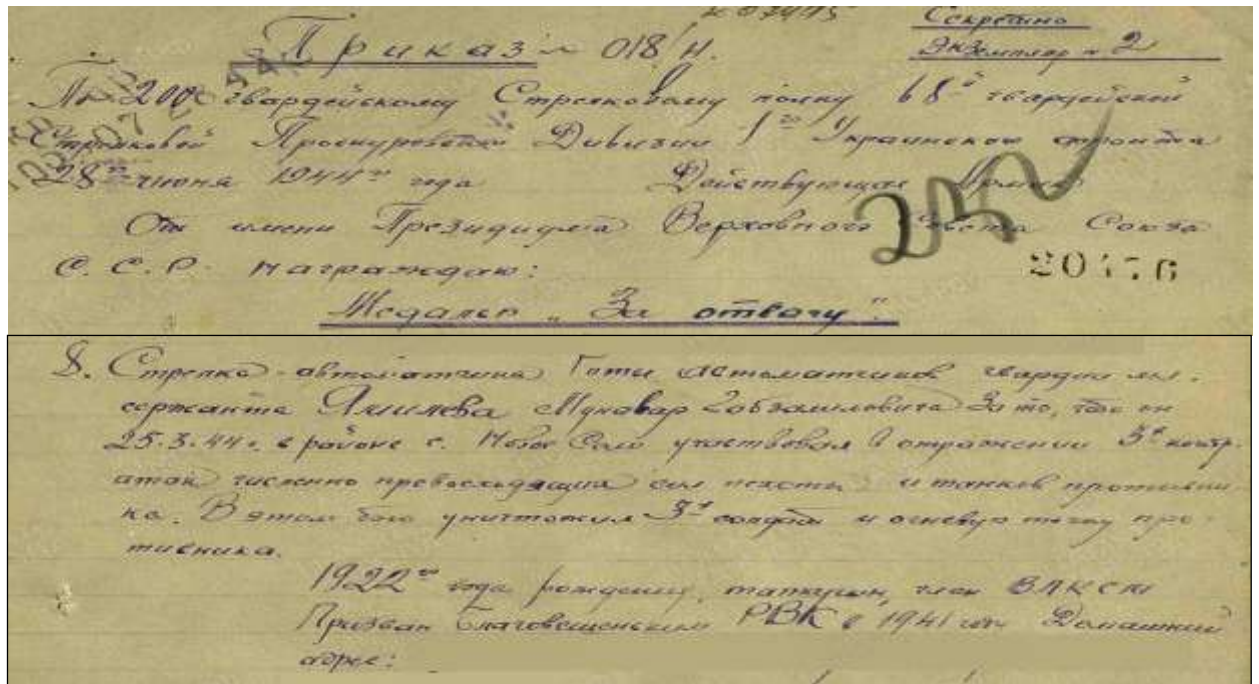 Секретно
Приказ № 018/н.
Экземпляр № 2
По 200 гвардейскому Стрелковому полку 68й гвардейской
Стрелковой Проскуровской Дивизии 1го Украинского фронта
28го июня 1944го года Действующая Армия
От имени Президиума Верховного Совета Союза
С.С.Р. награждаю:
20476
Медалью „За отвагу".
8. Стрелка-автоматчика Роты автоматчиков гвардии мл.
сержанта За то, что он
25.3.44г. в районе с. Новое Село участвовал в отражении 5и контр-
атак численно превосходящих сил пехоты и танков противни-
ка. В этом бою уничтожил 3х солдат и огневую точку про-
тивника.
1922го года рождения, татарин, член ВЛКСМ
Призван Благовещенским РВК в 1941 году Домашний
адрес: